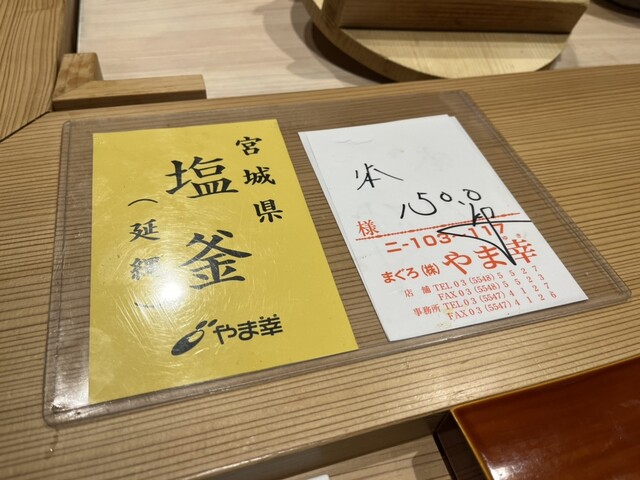 宮城県
塩釜
(延縄)
やま幸
本
150.0
様
ニ-103~117
まぐろ(株)やま幸
店舗 TEL 03 (5548) 5527
FAX 03 (5548) 5523
事務所 TEL 03 (5547) 4127
FAX 03 (5547) 4126